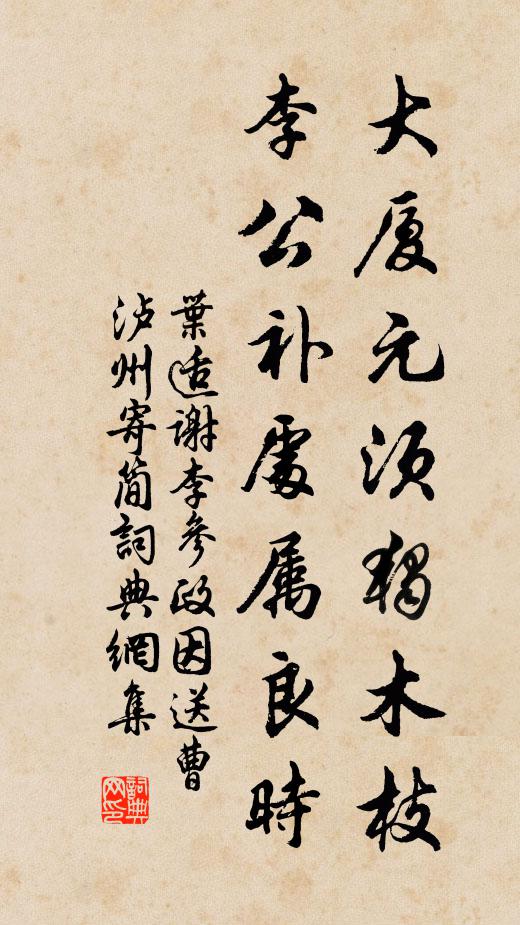 大厦元须独木枝
李公补处属良時
葉适謝李參政因送曹
泸州寄简詞典網集
詞典
网印